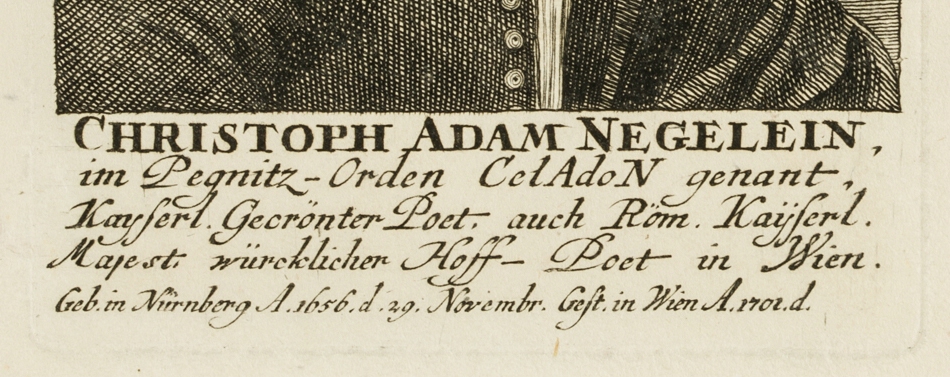 CHRISTOPH ADAM NEGELEIN,
im Pegnitz-Orden CelAdoN genant,
Kayserl. Gecrönter Poet, auch Röm. Kaÿserl.
Majest. würcklicher Hoff- Poet in Wien.
Geb. in Nürnberg A. 1656. d. 29. Novembr. Gest. in Wien A. 1701. d.